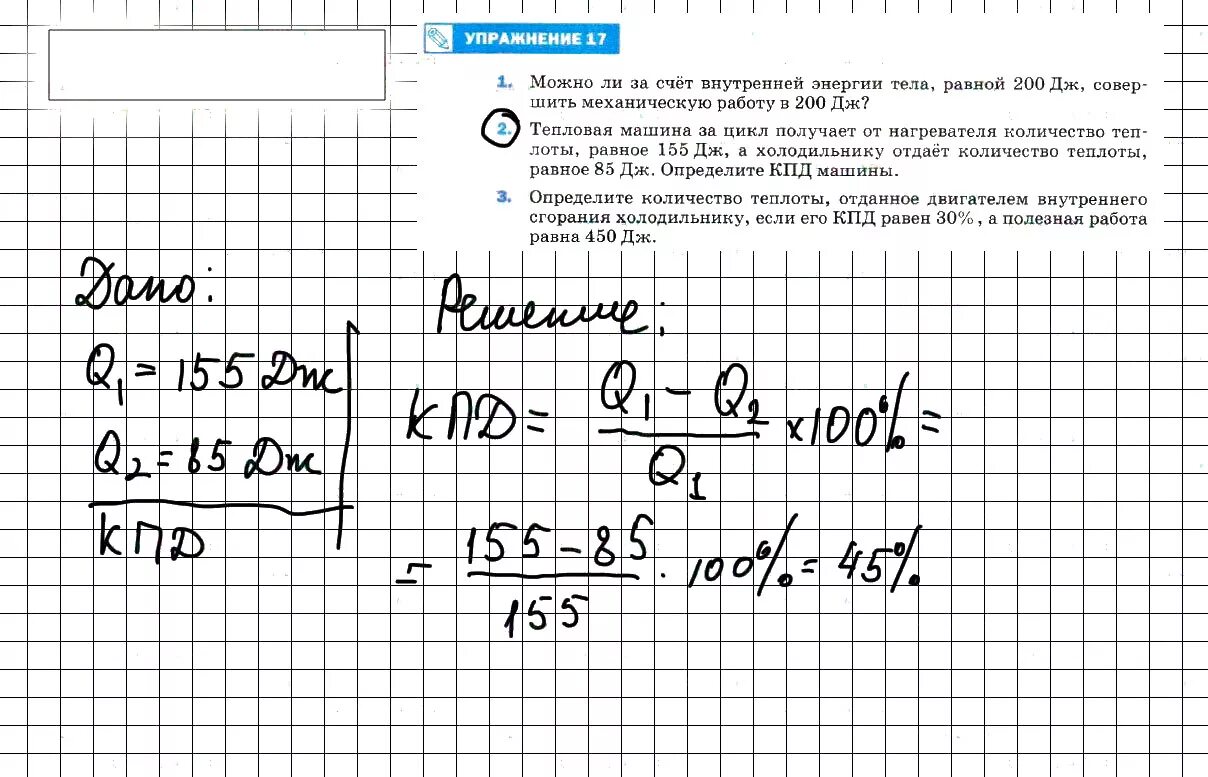 УПРАЖНЕНИЕ 17
1. Можно ли за счёт внутренней энергии тела, равной 200 Дж, совер-
шить механическую работу в 200 Дж?
2. Тепловая машина за цикл получает от нагревателя количество теп-
лоты, равное 155 Дж, а холодильнику отдаёт количество теплоты,
равное 85 Дж. Определите КПД машины.
3. Определите количество теплоты, отданное двигателем внутреннего
сгорания холодильнику, если его КПД равен 30%, а полезная работа
равна 450 Дж.
Дано:
Q₁ = 155 Дж
Q₂ = 85 Дж
КПД
Решение:
КПД = (Q₁ – Q₂)/Q₁ × 100% =
= (155 – 85)/155 · 100% = 45%